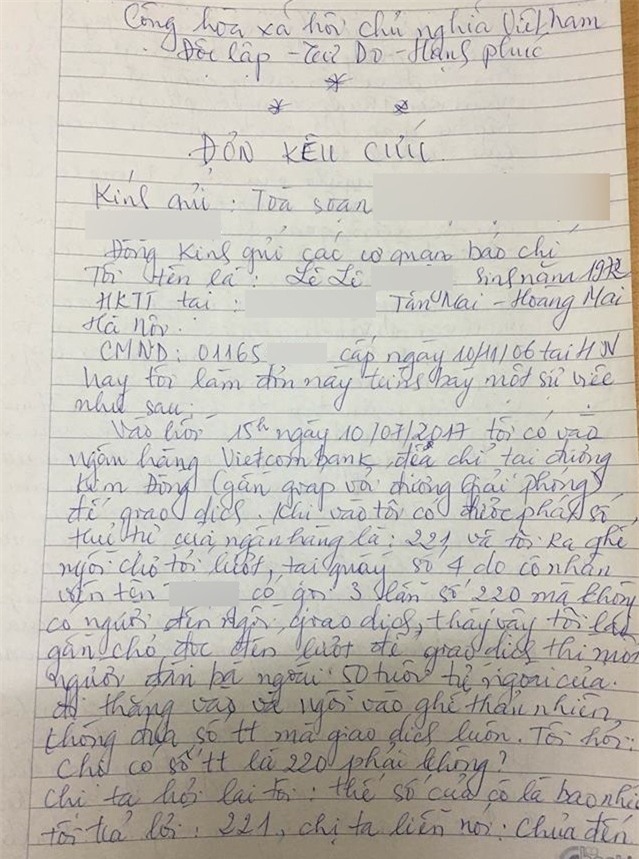 Cộng hòa xã hội chủ nghĩa Việt Nam
Độc lập - Tự Do - Hạnh phúc
ĐƠN KÊU CỨU
Kính gửi : Toà soạn
Đồng Kính gửi các cơ quan báo chí
Tôi tên là : Lê Lê sinh năm 1972
HKTT tại : Tân Mai - Hoàng Mai
Hà Nội.
CMND : 01165 cấp ngày 10/11/06 tại HN
Nay tôi làm đơn này trình bày một sự việc
như sau :
Vào hồi 15h ngày 10/07/2017 tôi có vào
ngân hàng Vietcombank, địa chỉ tại đường
Kim Đồng (gần giáp với đường Giải phóng)
để giao dịch. Khi vào tôi có được phát số
thứ tự của ngân hàng là : 221 và tôi ra ghế
ngồi chờ tới lượt, tại quầy số 4 do cô nhân
viên tên có gọi 3 lần số 220 mà không
có người đến ngồi giao dịch, thấy vậy tôi lại
gần chờ đợi đến lượt để giao dịch thì một
người đàn bà ngoài 50 tuổi từ ngoài cửa
đi thẳng vào và ngồi vào ghế thản nhiên
không đưa số tt mà giao dịch luôn. Tôi hỏi :
Chị có số tt là 220 phải không ?
Chị ta hỏi lại tôi : thế số của cô là bao nhiê
tôi trả lời : 221, chị ta liền nói : Chưa đến